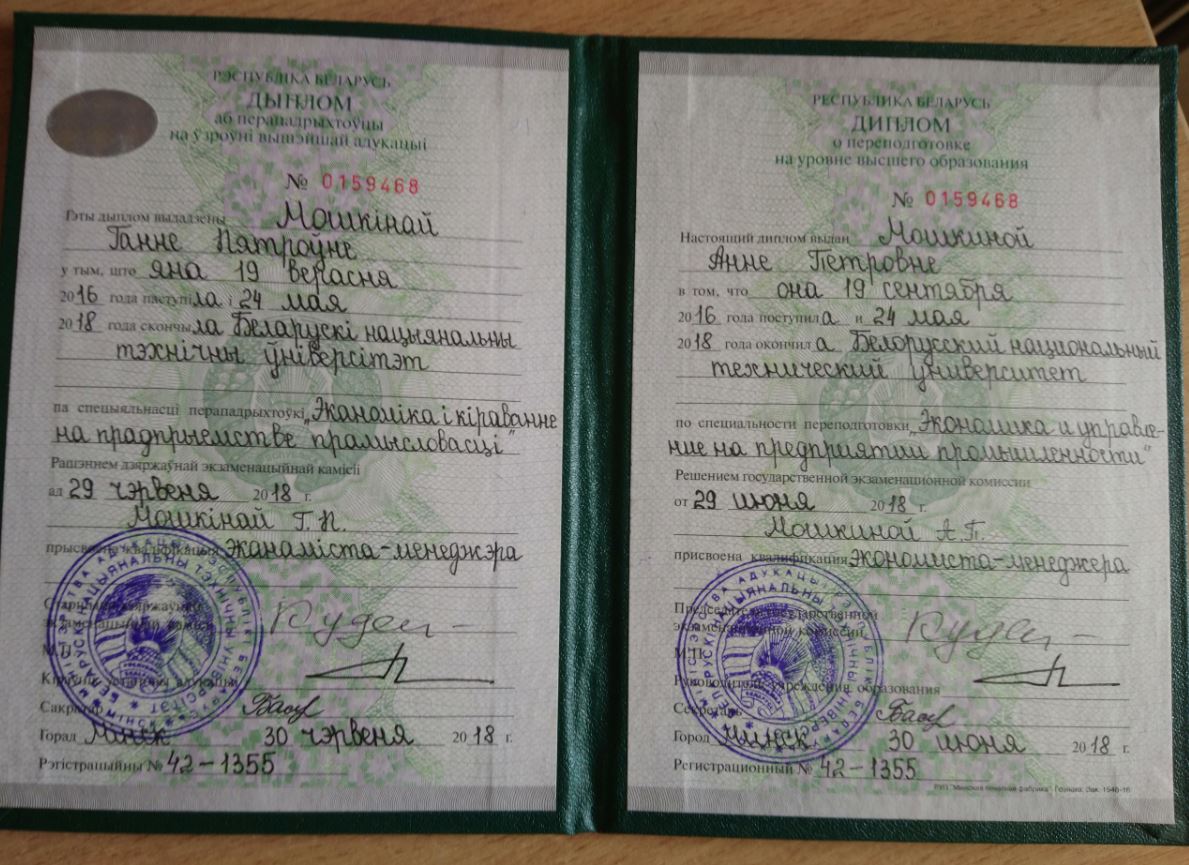 РЭСПУБЛІКА БЕЛАРУСЬ
ДЫПЛОМ
аб перападрыхтоўцы
на ўзроўні вышэйшай адукацыі
№ 0159468
Гэты дыплом выдадзены Мошкінай
Ганне Пятроўне
у тым, што яна 19 верасня
2016 года паступіла і 24 мая
2018 года скончыла Беларускі нацыянальны
тэхнічны ўніверсітэт
па спецыяльнасці перападрыхтоўкі „Эканоміка і кіраванне
на прадпрыемстве прамысловасці”
Рашэннем дзяржаўнай экзаменацыйнай камісіі
ад 29 чэрвеня 2018 г.
Мошкінай Г.П.
прысвоена кваліфікацыя эканаміста-менеджэра
Старшыня дзяржаўнай
экзаменацыйнай камісіі
М.П.
Кіраўнік установы адукацыі
Сакратар
Горад Мінск 30 чэрвеня 2018 г.
Рэгістрацыйны № 42-1355
РЕСПУБЛИКА БЕЛАРУСЬ
ДИПЛОМ
о переподготовке
на уровне высшего образования
№ 0159468
Настоящий диплом выдан Мошкиной
Анне Петровне
в том, что она 19 сентября
2016 года поступила и 24 мая
2018 года окончила Белорусский национальный
технический университет
по специальности переподготовки „Экономика и управле-
ние на предприятии промышленности”
Решением государственной экзаменационной комиссии
от 29 июня 2018 г.
Мошкиной А.П.
присвоена квалификация экономиста-менеджера
Председатель государственной
экзаменационной комиссии
М.П.
Руководитель учреждения образования
Секретарь
Город Минск 30 июня 2018 г.
Регистрационный № 42-1355
РУП "Минская печатная фабрика" Гознака. Зак. 1540-16